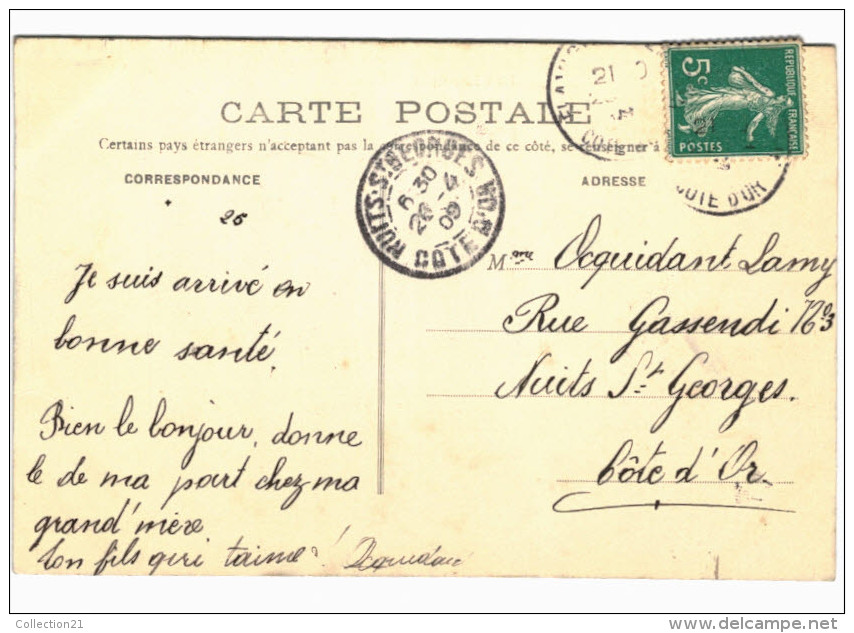 CARTE POSTALE
Certains pays étrangers n'acceptant pas la correspondance de ce côté, se renseigner à
CORRESPONDANCE
ADRESSE
RÉPUBLIQUE FRANÇAISE
5c
POSTES
21
CÔTE D'OR
NUITS-ST GEORGES
6 30
26-4
09
COTE D'OR
25
Je suis arrivé en
bonne santé.
Bien le bonjour, donne
le de ma part chez ma
grand'mère
Ton fils qui taime!
Mme Ocquidant Lamy
Rue Gassendi No 3
Nuits St Georges.
Côte d'Or
Collection21
delcampe.net